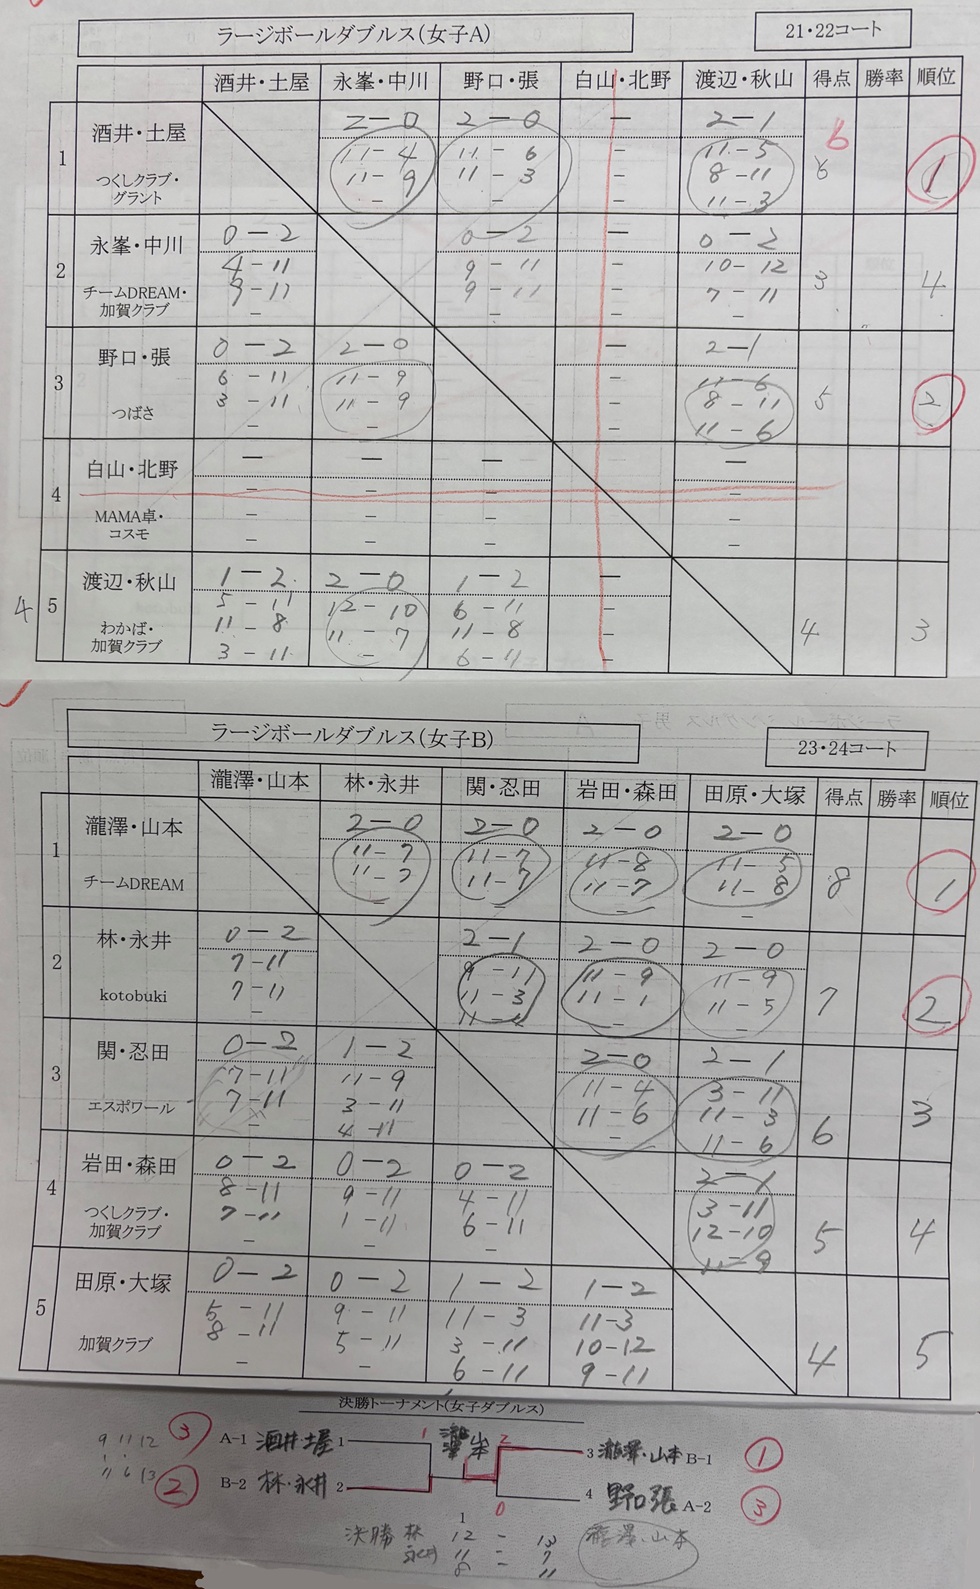 ラージボールダブルス(女子A)
21・22コート
酒井・土屋 永峯・中川 野口・張 白山・北野 渡辺・秋山 得点 勝率 順位
1 酒井・土屋 つくしクラブ・グラント
2-0 2-0 - 2-1 6 6 1
11-4 11-6 - 11-5
11-9 11-3 - 8-11
- - - 11-3
2 永峯・中川 チームDREAM・加賀クラブ
0-2 0-2 - 0-2 3 4
4-11 9-11 - 10-12
9-11 9-11 - 7-11
- - - -
3 野口・張 つばさ
0-2 2-0 - 2-1 5 2
6-11 11-9 - 11-6
3-11 11-9 - 8-11
- - - 11-6
4 白山・北野 MAMA卓・コスモ
- - - -
- - - -
- - - -
- - - -
4 5 渡辺・秋山 わかば・加賀クラブ
1-2 2-0 1-2 - 4 3
5-11 12-10 6-11 -
11-8 11-7 11-8 -
3-11 - 6-11 -
ラージボールダブルス(女子B)
23・24コート
瀧澤・山本 林・永井 関・忍田 岩田・森田 田原・大塚 得点 勝率 順位
1 瀧澤・山本 チームDREAM
2-0 2-0 2-0 2-0 8 1
11-7 11-7 11-8 11-5
11-7 11-7 11-7 11-8
- - - -
2 林・永井 kotobuki
0-2 2-1 2-0 2-0 7 2
7-11 9-11 11-9 11-9
7-11 11-3 11-1 11-5
- 11-4 - -
3 関・忍田 エスポワール
0-2 1-2 2-0 2-1 6 3
7-11 11-9 11-4 3-11
7-11 3-11 11-6 11-3
- 4-11 - 11-6
4 岩田・森田 つくしクラブ・加賀クラブ
0-2 0-2 0-2 2-1 5 4
8-11 9-11 4-11 3-11
7-11 1-11 6-11 12-10
- - - 11-9
5 田原・大塚 加賀クラブ
0-2 0-2 1-2 1-2 4 5
5-11 9-11 11-3 11-3
8-11 5-11 3-11 10-12
- - 6-11 9-11
決勝トーナメント(女子ダブルス)
9 11 12
11 6 13
3 A-1 酒井土屋 1
1 瀧澤 山本 2
3 瀧澤・山本 B-1 1
2 B-2 林・永井 2
4 野口張 A-2 3
1 0
決勝 林 永井
12 - 13
11 - 7
8 - 11
瀧澤・山本